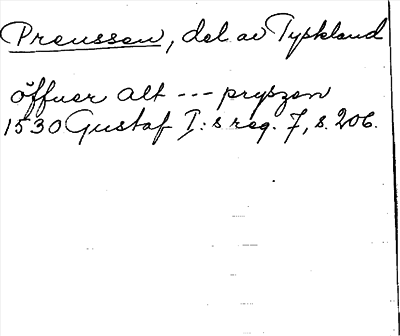 Preussen, del av Tyskland
öffuer alt --- pryszen
1530 Gustaf I:s reg. 7, s. 206.